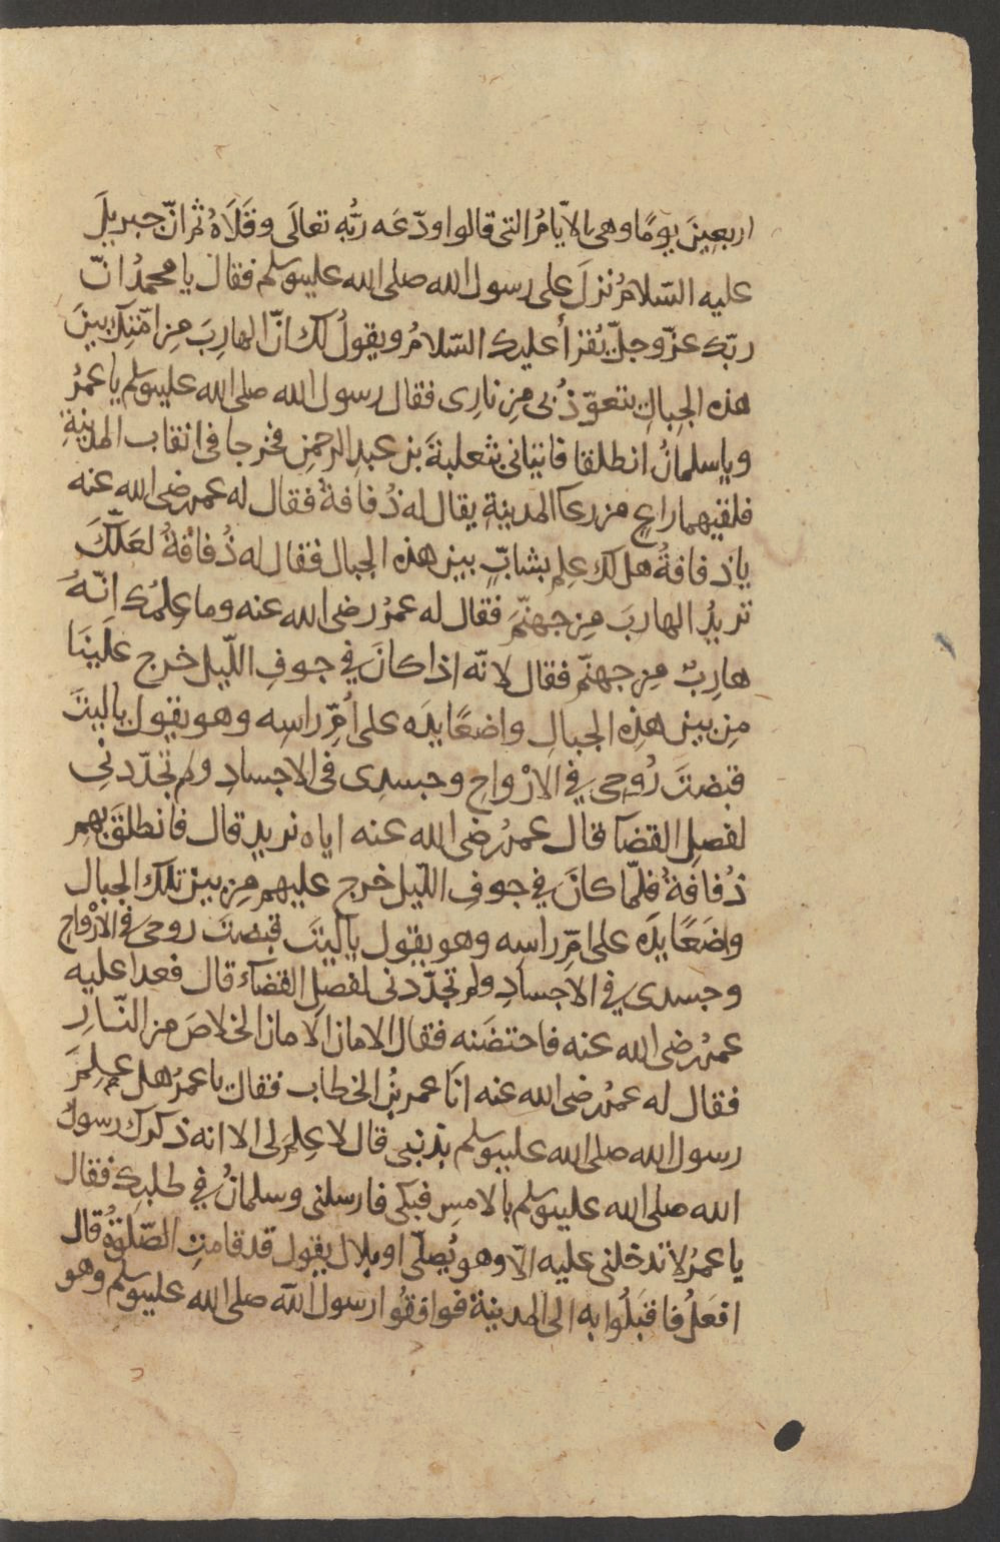 اربعينَ يومًا وهى الاَيّامُ التى قالوا ودّعَه ربُّه تعالَى وقَلَاهُ ثم انّ جبريلَ
عليه السّلامُ نزلَ على رسول الله صلى الله عليه وسلم فقال يا محمدُ انّ
ربّك عزّ وجلّ يُقرأُ عليك السّلامُ ويقولُ لك انّ الهارِبَ مِن امّتِك بينَ
هذه الجِبالِ يتعوّذُ بى مِن نارِى فقال رسول الله صلى الله عليه وسلم يا عمرُ
ويا سلمانُ انطلقا فاتيانى بثعلبةَ بن عبدِ الرحمنِ فخرجا فى انقاب المدينةِ
فلقيهما راعٍ من رعآ المدينةِ يقال له ذُفافةُ فقال له عمر رضى الله عنه
يا ذفافةُ هل لك عِلم بشابٍّ بين هذه الجبال فقال له ذُفافةُ لعَلّكَ
تريدُ الهاربَ مِن جهنّمَ فقال له عمرُ رضى الله عنه وما عِلمُك انّهُ
هارِبٌ مِن جهنّم فقال لانّه اذا كانَ فى جوفِ اللّيلِ خرج علَينَا
مِن بين هذِه الجبالِ واضعًا يدَه على اُمِّ راسِه وهو يقول يا ليتَ
قبضتَ رُوحى فى الارْواحِ وجسدِى فى الاجسادِ ولم تجَرّدنى
لفصلِ القضآ قال عمرُ رضى الله عنه اياه نريد قال فانطلقَ بهم
ذُفافةُ فلمّا كانَ فى جوفِ اللّيل خرج عليهم مِن بين تلك الجبال
واضعًا يدَه على امِّ راسه وهو يقول يا ليتَ قبضتَ روحى فى الارْواحِ
وجسدى فى الاجسادِ ولم تجَرّدنى لفصلِ القضآء قال فعدا عليه
عمرُ رضى الله عنه فاحتضَنه فقال الامان الامان الخلاصَ من النّارِ
فقال له عمرُ رضى الله عنه انَا عمر بنُ الخطاب فقال يا عمرُ هل علِمَ
رسول الله صلى الله عليه وسلم بذنبى قال لا عِلمَ لى الا انه ذكرك رسولُ
الله صلى الله عليه وسلم بالامسِ فبكى فارسلنى وسلمانُ فى طلبِك فقال
يا عمرُ لا تدخلنى عليه الّا وهو يُصلّى او بلال يقول قد قامتِ الصّلوةُ قال
افعَلُ فاقبَلُوا به الى المدينة فوافقُوا رسول الله صلى الله عليه وسلم وهو